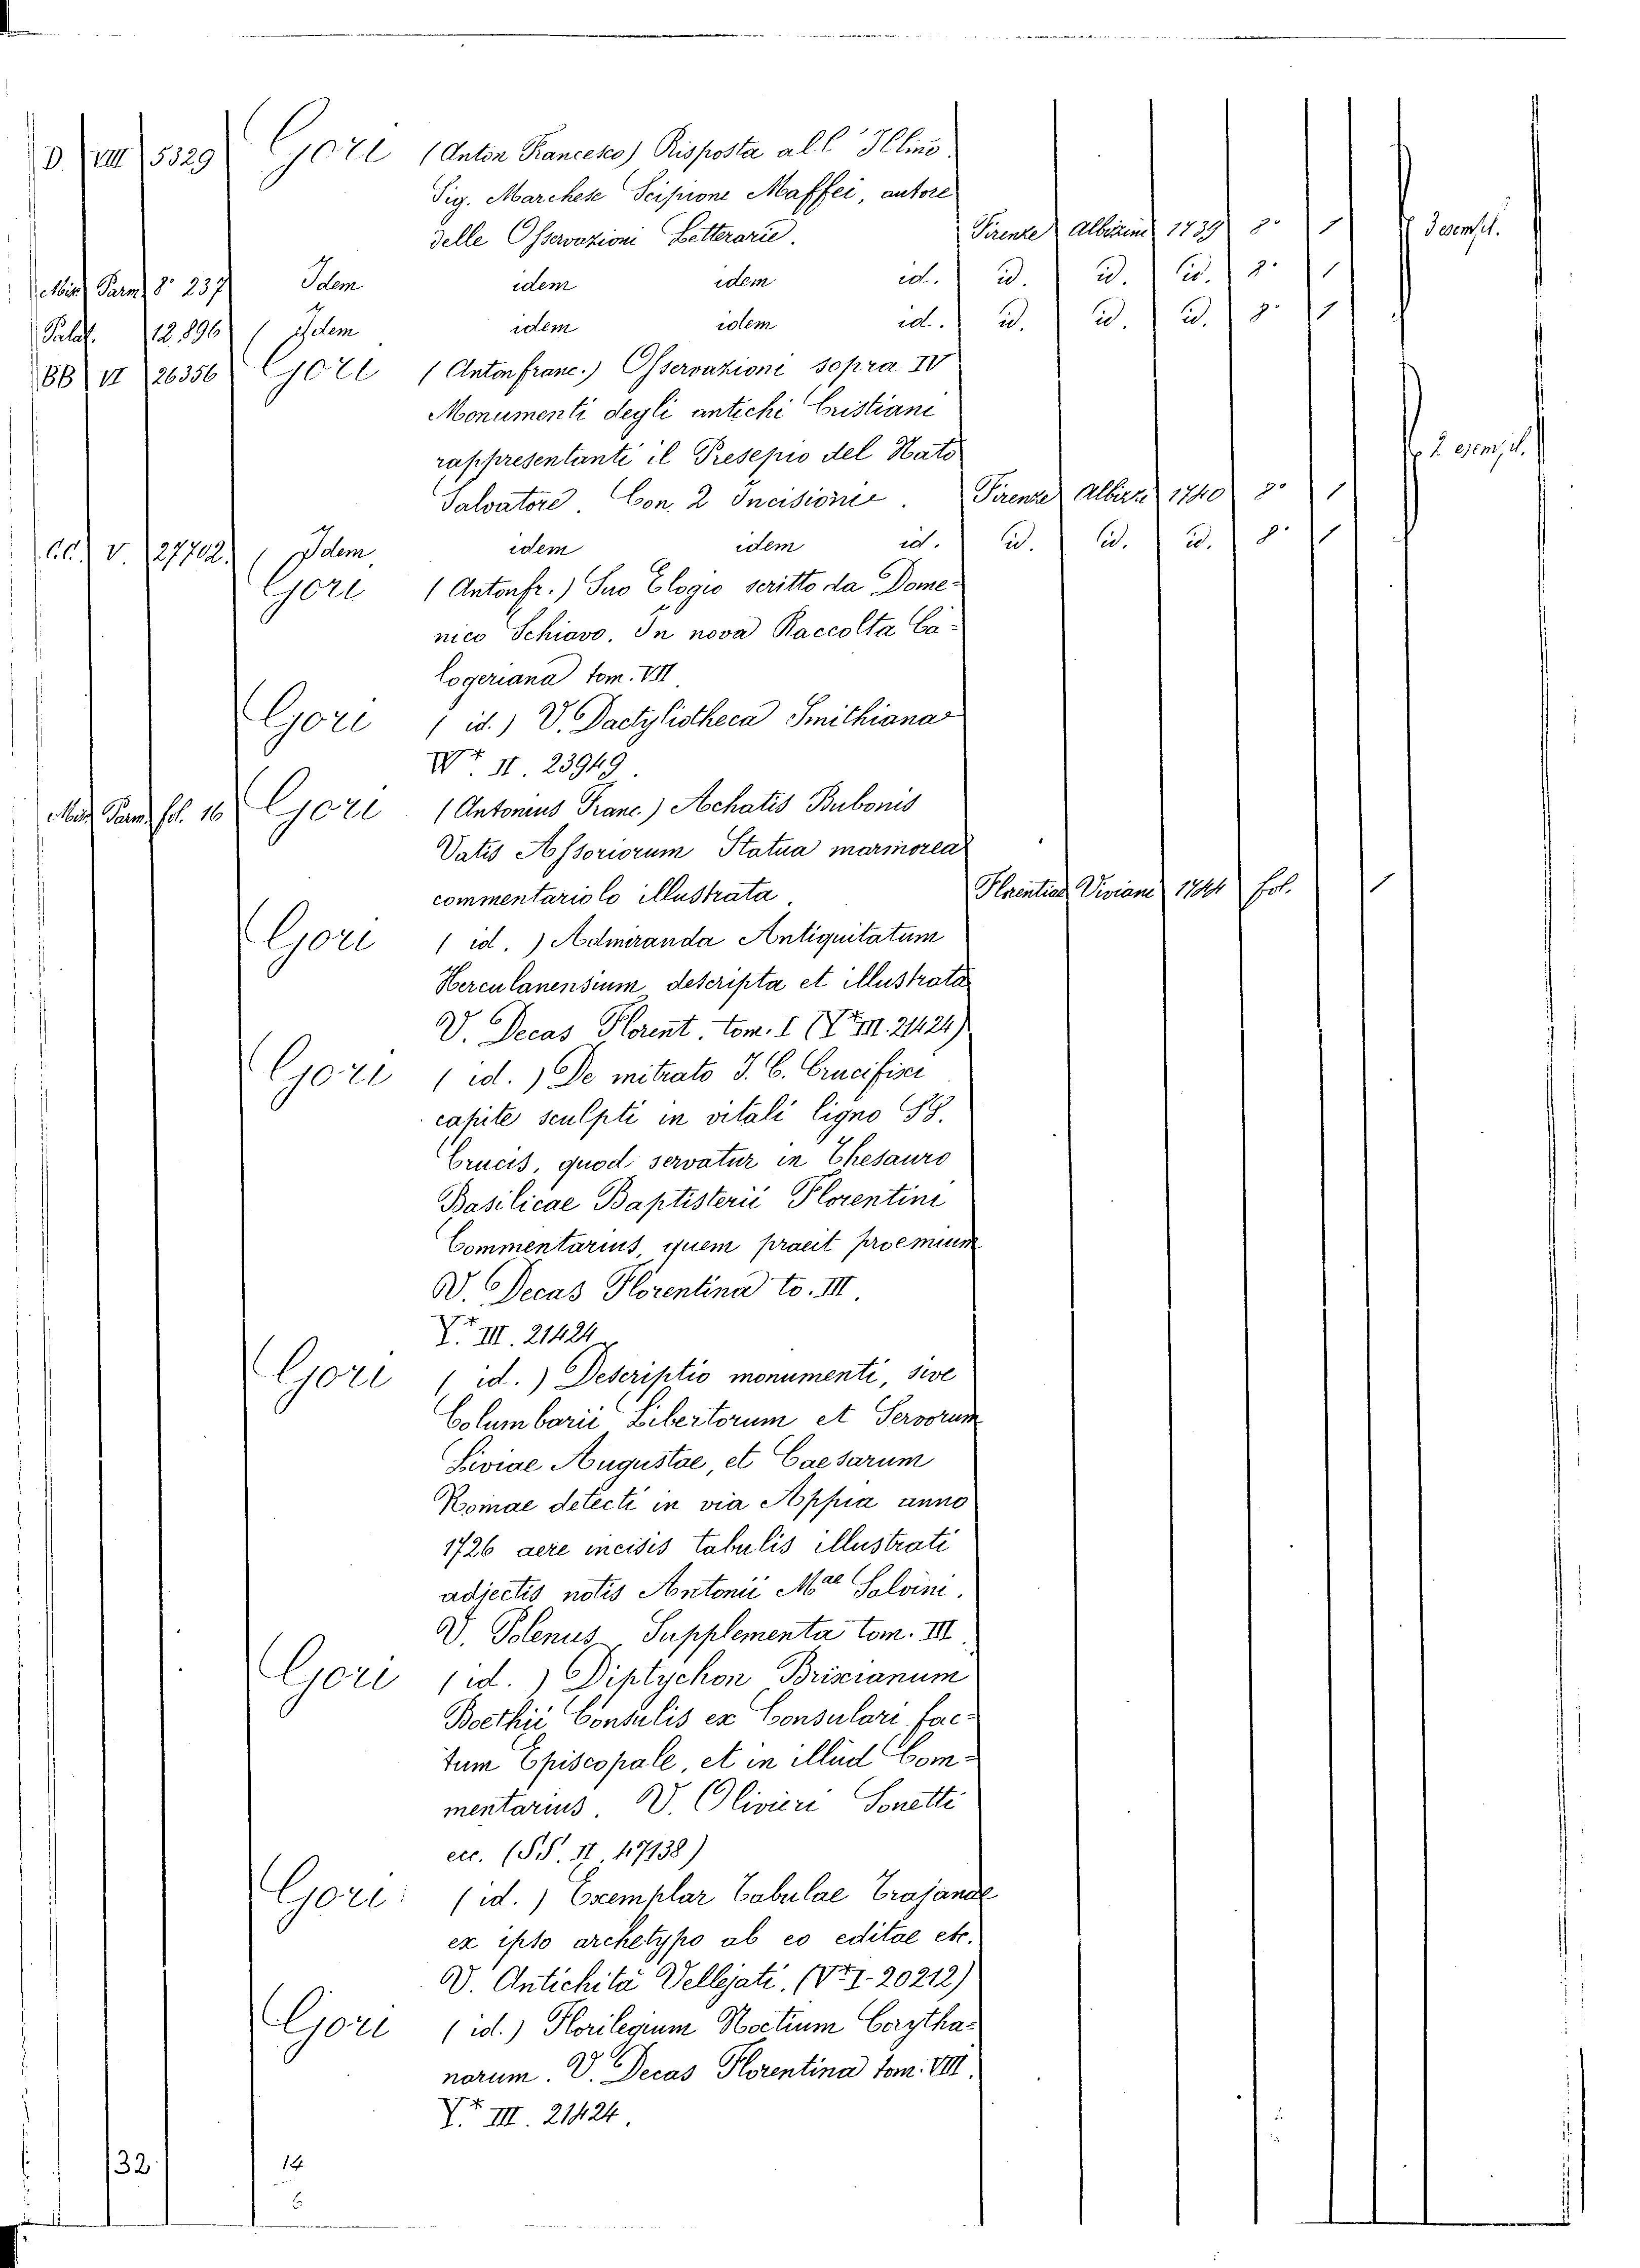 D. VIII 5329 Gori (Anton Francesco) Risposta all' Illmo
Sig. Marchese Scipione Maffei, autore
delle Osservazioni Letterarie. Firenze Albizzini 1739 8° 1 3 esempl.
Misc. Parm. 8° 237 Idem idem idem id. id. id. id. 8° 1
Palat. 12.896 Idem idem idem id. id. id. id. 8° 1
BB VI 26356 Gori (Antonfranc.) Osservazioni sopra IV
Monumenti degli antichi Cristiani
rappresentanti il Presepio del Nato
Salvatore. Con 2 Incisioni. Firenze Albizzi 1740 8° 1 2 esempl.
CC. V. 27702. Idem idem idem id. id. id. id. 8° 1
Gori (Antonfr.) Suo Elogio scritto da Dome-
nico Schiavo. In nova Raccolta Ca-
logeriana tom. VII
Gori (id.) V. Dactyliotheca Smithiana
W* II. 23949.
Misc. Parm. fol. 16 Gori (Antonius Franc.) Achatis Bubonis
Vatis Assoriorum Statua marmorea
commentariolo illustrata. Florentiae Viviani 1744 fol. 1
Gori (id.) Admiranda Antiquitatum
Herculanensium descripta et illustrata
V. Decas Florent. tom. I (Y* III. 21424)
Gori (id.) De mitrato J. C. Crucifixi
capite sculpti in vitali ligno SS.
Crucis, quod servatur in Thesauro
Basilicae Baptisterii Florentini
Commentarius, quem praeit proemium
V. Decas Florentina to. III.
Y* III. 21424
Gori (id.) Descriptio monumenti, sive
Columbarii Libertorum et Servorum
Liviae Augustae, et Caesarum
Romae detecti in via Appia anno
1726 aere incisis tabulis illustrati
adjectis notis Antonii Mae Salvini.
V. Polenus Supplementa tom. III.
Gori (id.) Diptychon Brixianum
Boethii Consulis ex Consulari fac-
tum Episcopale, et in illud Com-
mentarius. V. Olivieri Sonetti
ecc. (SS. II. 47138)
Gori: (id.) Exemplar Tabulae Trajanae
ex ipso archetypo ab eo editae etc.
V. Antichità Vellejati. (V* I. 20212)
Gori (id.) Florilegium Noctium Corytha-
narum. V. Decas Florentina tom. VIII.
Y* III. 21424.
32 14